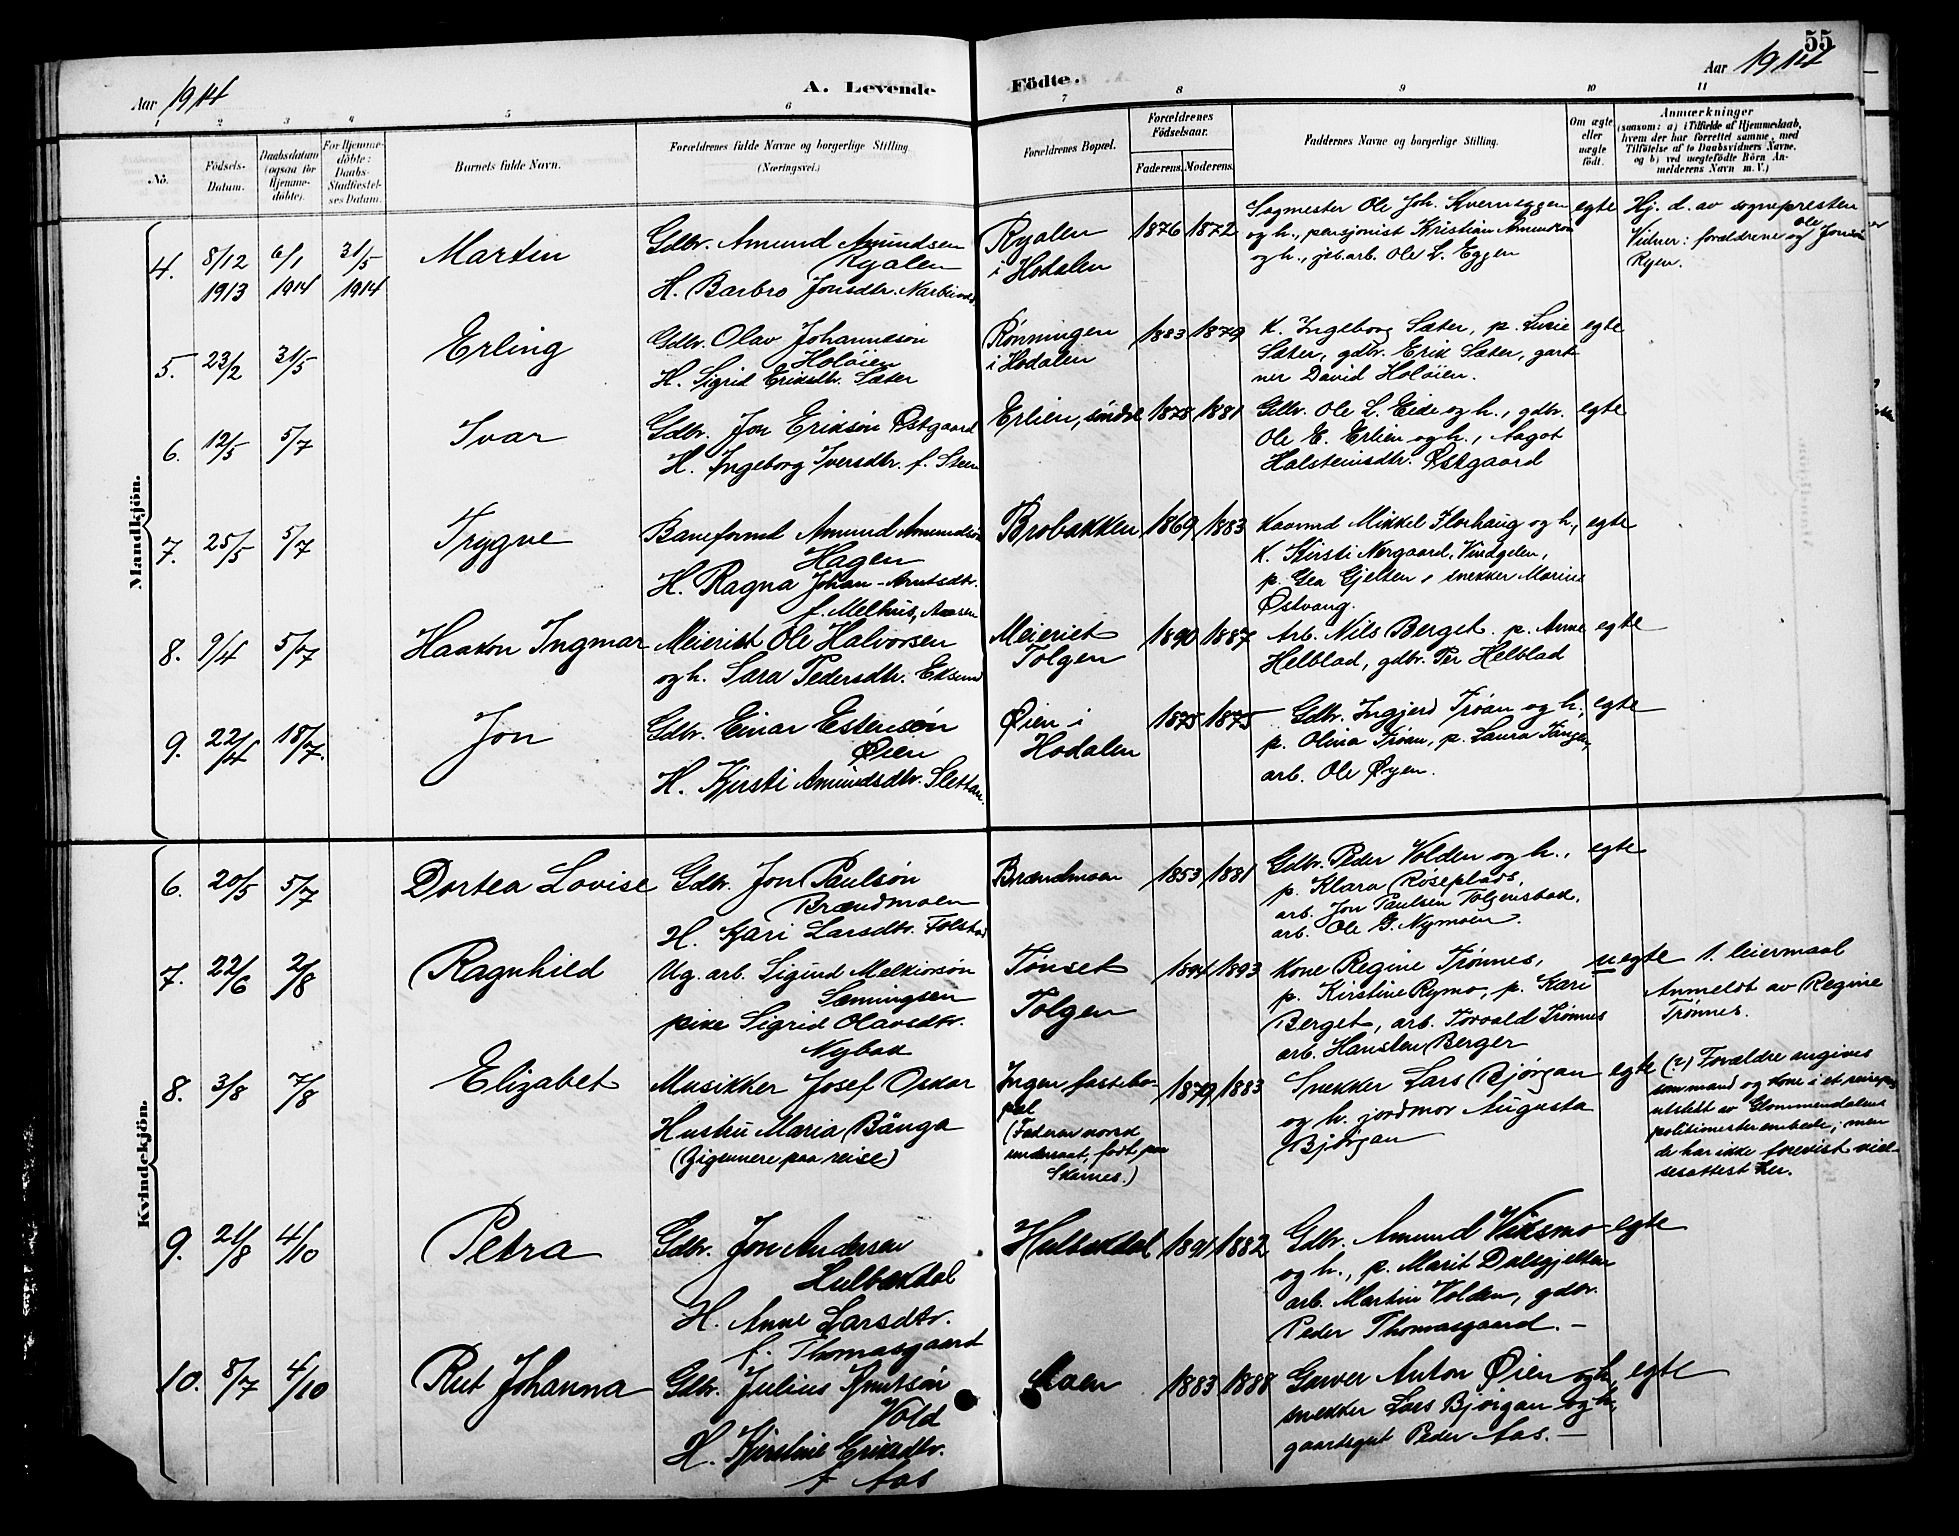 55
Aar 1914
A. Levende
Födte.
Aar 1914
1 2 3 4 5 6 7 8 9 10 11
No.
Födsels-
Datum.
Daabsdatum
(ogsaa for
Hjemme-
döbte).
For Hjemme-
döbte:
Daabs-
Stadfæstel-
ses Datum.
Barnets fulde Navn.
Forældrenes fulde Navne og borgerlige Stilling
(Næringsvei.)
Forældrenes Bopæl.
Forældrenes
Födselsaar.
Faderens. Moderens.
Faddernes Navne og borgerlige Stilling.
Om ægte
eller
uægte
födt.
Anmærkninger
(saasom: a) i Tilfælde af Hjemmedaab,
hvem der har forrettet samme, med
Tilföielse af to Daabsvidners Navne,
og b) ved uægtefödte Börn An-
melderens Navn m. V.)
Mandkjön.
4. 8/12 1913 6/1 1914 31/5 1914
Martin
Gdbr. Amund Amundsen
Ryalen
H. Barbro Jonsdtr.
Ryalen
i Hodalen
1876 1872
Sagmester Ole Joh. Kverneggen
og h., pensjonist Kristian Amundsen
og h., jeb.arb. Ole L. Eggen
egte
Hj. d. av sognepresten
Vidner: forældrene og Ole Jonsen
Ryen.
5. 23/2 31/5
Erling
Gdbr. Olav Johanneson
Holöien
H. Sigrid Eriksdtr. Sæter
Rønningen
i Hodalen
1883 1879
K. Ingeborg Sæter, p. Lusie
Sæter, gdbr. Erik Sæter, gart
ner David Holöien.
egte
6. 12/5 5/7
Ivar
Gdbr. Jon Erikson Østgaard
H. Ingeborg Iversdtr. f. Steen
Erlien, söndre
1878 1881
Gdbr. Ole L. Eide og h., gdbr.
Ole E. Erlien og h., Aagot
Halsteinsdtr. Østgaard
egte
7. 25/5 5/7
Trygve
Baneformd Amund Amundsøn
Hagen
H. Ragna Johan-Arntsdtr.
f. Melhus, Aasen
Brobakken
1869 1883
Kavmd Mikkel Florhaug og h.,
K. Kirsti Nergaard, Vindgelen,
p. Gea Gjelten, snekker Marius
Østvang.
egte
8. 9/4 5/7
Haakon Ingmar
Meierist Ole Halvorsen
og h. Sara Pedersdtr.
Meieriet
Tolgen
1890 1887
Arb. Nils Berget. p. Anne
Helblad, gdbr. Per Helblad
egte
9. 22/4 18/7.
Jon
Gdbr. Einar Estensøn
Øien
H. Kjersti Amundsdtr. Slettan.
Øien i
Hodalen
1875 1875
Gdbr. Ingjerd Trøan og h.,
p. Olina Trøan, p. Laura
arb. Ole Øyen.
egte
Kvindekjön.
6. 20/5 5/7
Dortea Lovise
Gdbr. Jon Paulsøn
Brændmoen
H. Kari Larsdtr.
Brændmoen
1853 1881
Gdbr. Peder Volden og h.,
p. Klara Røseplads,
arb. Jon Paulsen
arb. Ole G. Nymoen.
egte
7. 22/6 2/8
Ragnhild
Ug. arb. Sigurd Melkiorsøn
Sæmingsen
pike Sigrid Olavsdtr.
Nybak
Tønset
Tolgen
1894 1893
Kone Regine Trønnes,
p. Kirstine Rymo, p. Kari
Berget, arb. Torvald Trønnes
arb. Hansten Berger
uegte
1. leiermaal
Anmeldt av Regine
Trønnes.
8. 3/8 7/8
Elizabet
Musikker Josef Oskar
Hustru Maria Bånga
(Zigeunere paa reise)
Ingen fastebo-
pæl
(Faderen norsk
undersaat, født paa
Skarnes.)
1879 1883
Snekker Lars Bjørgan
og h. jordmor Augusta
Bjørgan
egte
(?) Forældre angives
som mand og kone i et reisepas
utstedt av Glommendalens
politimesterembede; men
de har ikke forevist viel-
sesattest her.
9. 21/8 4/10
Petra
Gdbr. Jon Andersen
Hulbækdal
H. Anne Larsdtr.
f. Thomasgaard
Hulbækdal
1891 1882
Gdbr. Amund Viksmo
og h., p. Marit Dalsgjelten
arb. Martin Volden, gdbr.
Peder Thomasgaard. –
egte
10. 8/7 4/10
Rut Johanna
Gdbr. Julius Knutsøn
Vold
H. Kjerstine Eriksdtr.
f. Aas
Moen
1883 1888
Garver Anton Øien og h,
snekker Lars Bjørgan og h,
gaardsgut Peder Aas. –
egte